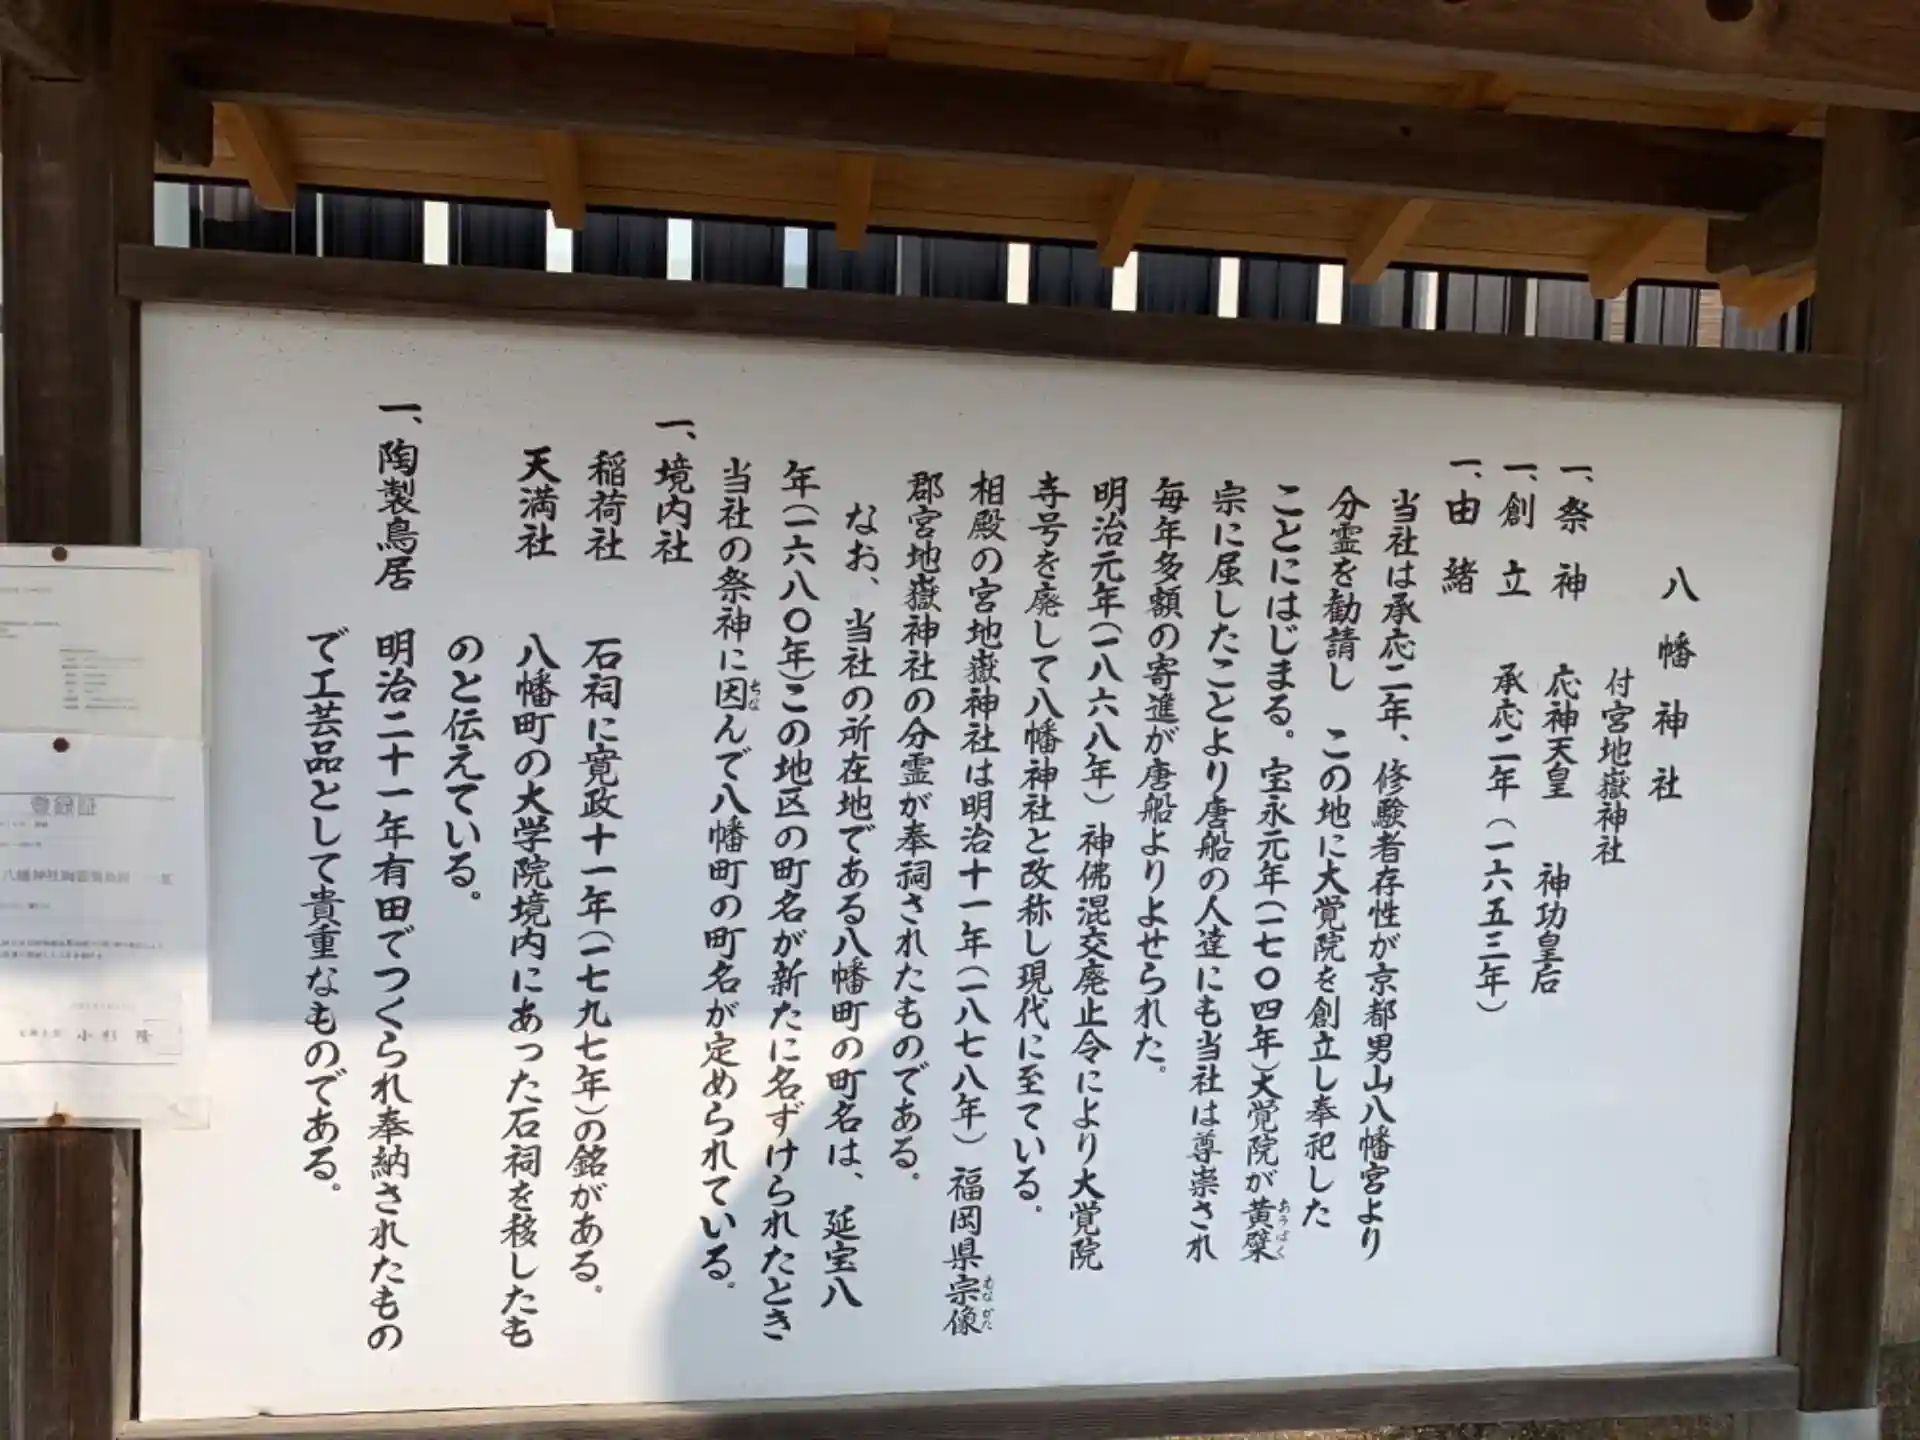 八幡神社
付宮地嶽神社
一、祭神 応神天皇 神功皇后
一、創立 承応二年（一六五三年）
一、由緒
当社は承応二年、修験者存性が京都男山八幡宮より
分霊を勧請し この地に大覚院を創立し奉祀した
ことにはじまる。宝永元年（一七〇四年）大覚院が黄檗
おうばく
宗に属したことより唐船の人達にも当社は尊崇され
毎年多額の寄進が唐船よりよせられた。
明治元年（一八六八年）神佛混交廃止令により大覚院
寺号を廃して八幡神社と改称し現代に至ている。
相殿の宮地嶽神社は明治十一年（一八七八年）福岡県宗像
むなかた
郡宮地嶽神社の分霊が奉祠されたものである。
なお、当社の所在地である八幡町の町名は、延宝八
年（一六八〇年）この地区の町名が新たに名ずけられたとき
当社の祭神に因んで八幡町の町名が定められている。
ちな
一、境内社
稲荷社 石祠に寛政十一年（一七九七年）の銘がある。
天満社 八幡町の大学院境内にあった石祠を移したも
のと伝えている。
一、陶製鳥居 明治二十一年有田でつくられ奉納されたもの
で工芸品として貴重なものである。
小杉 隆